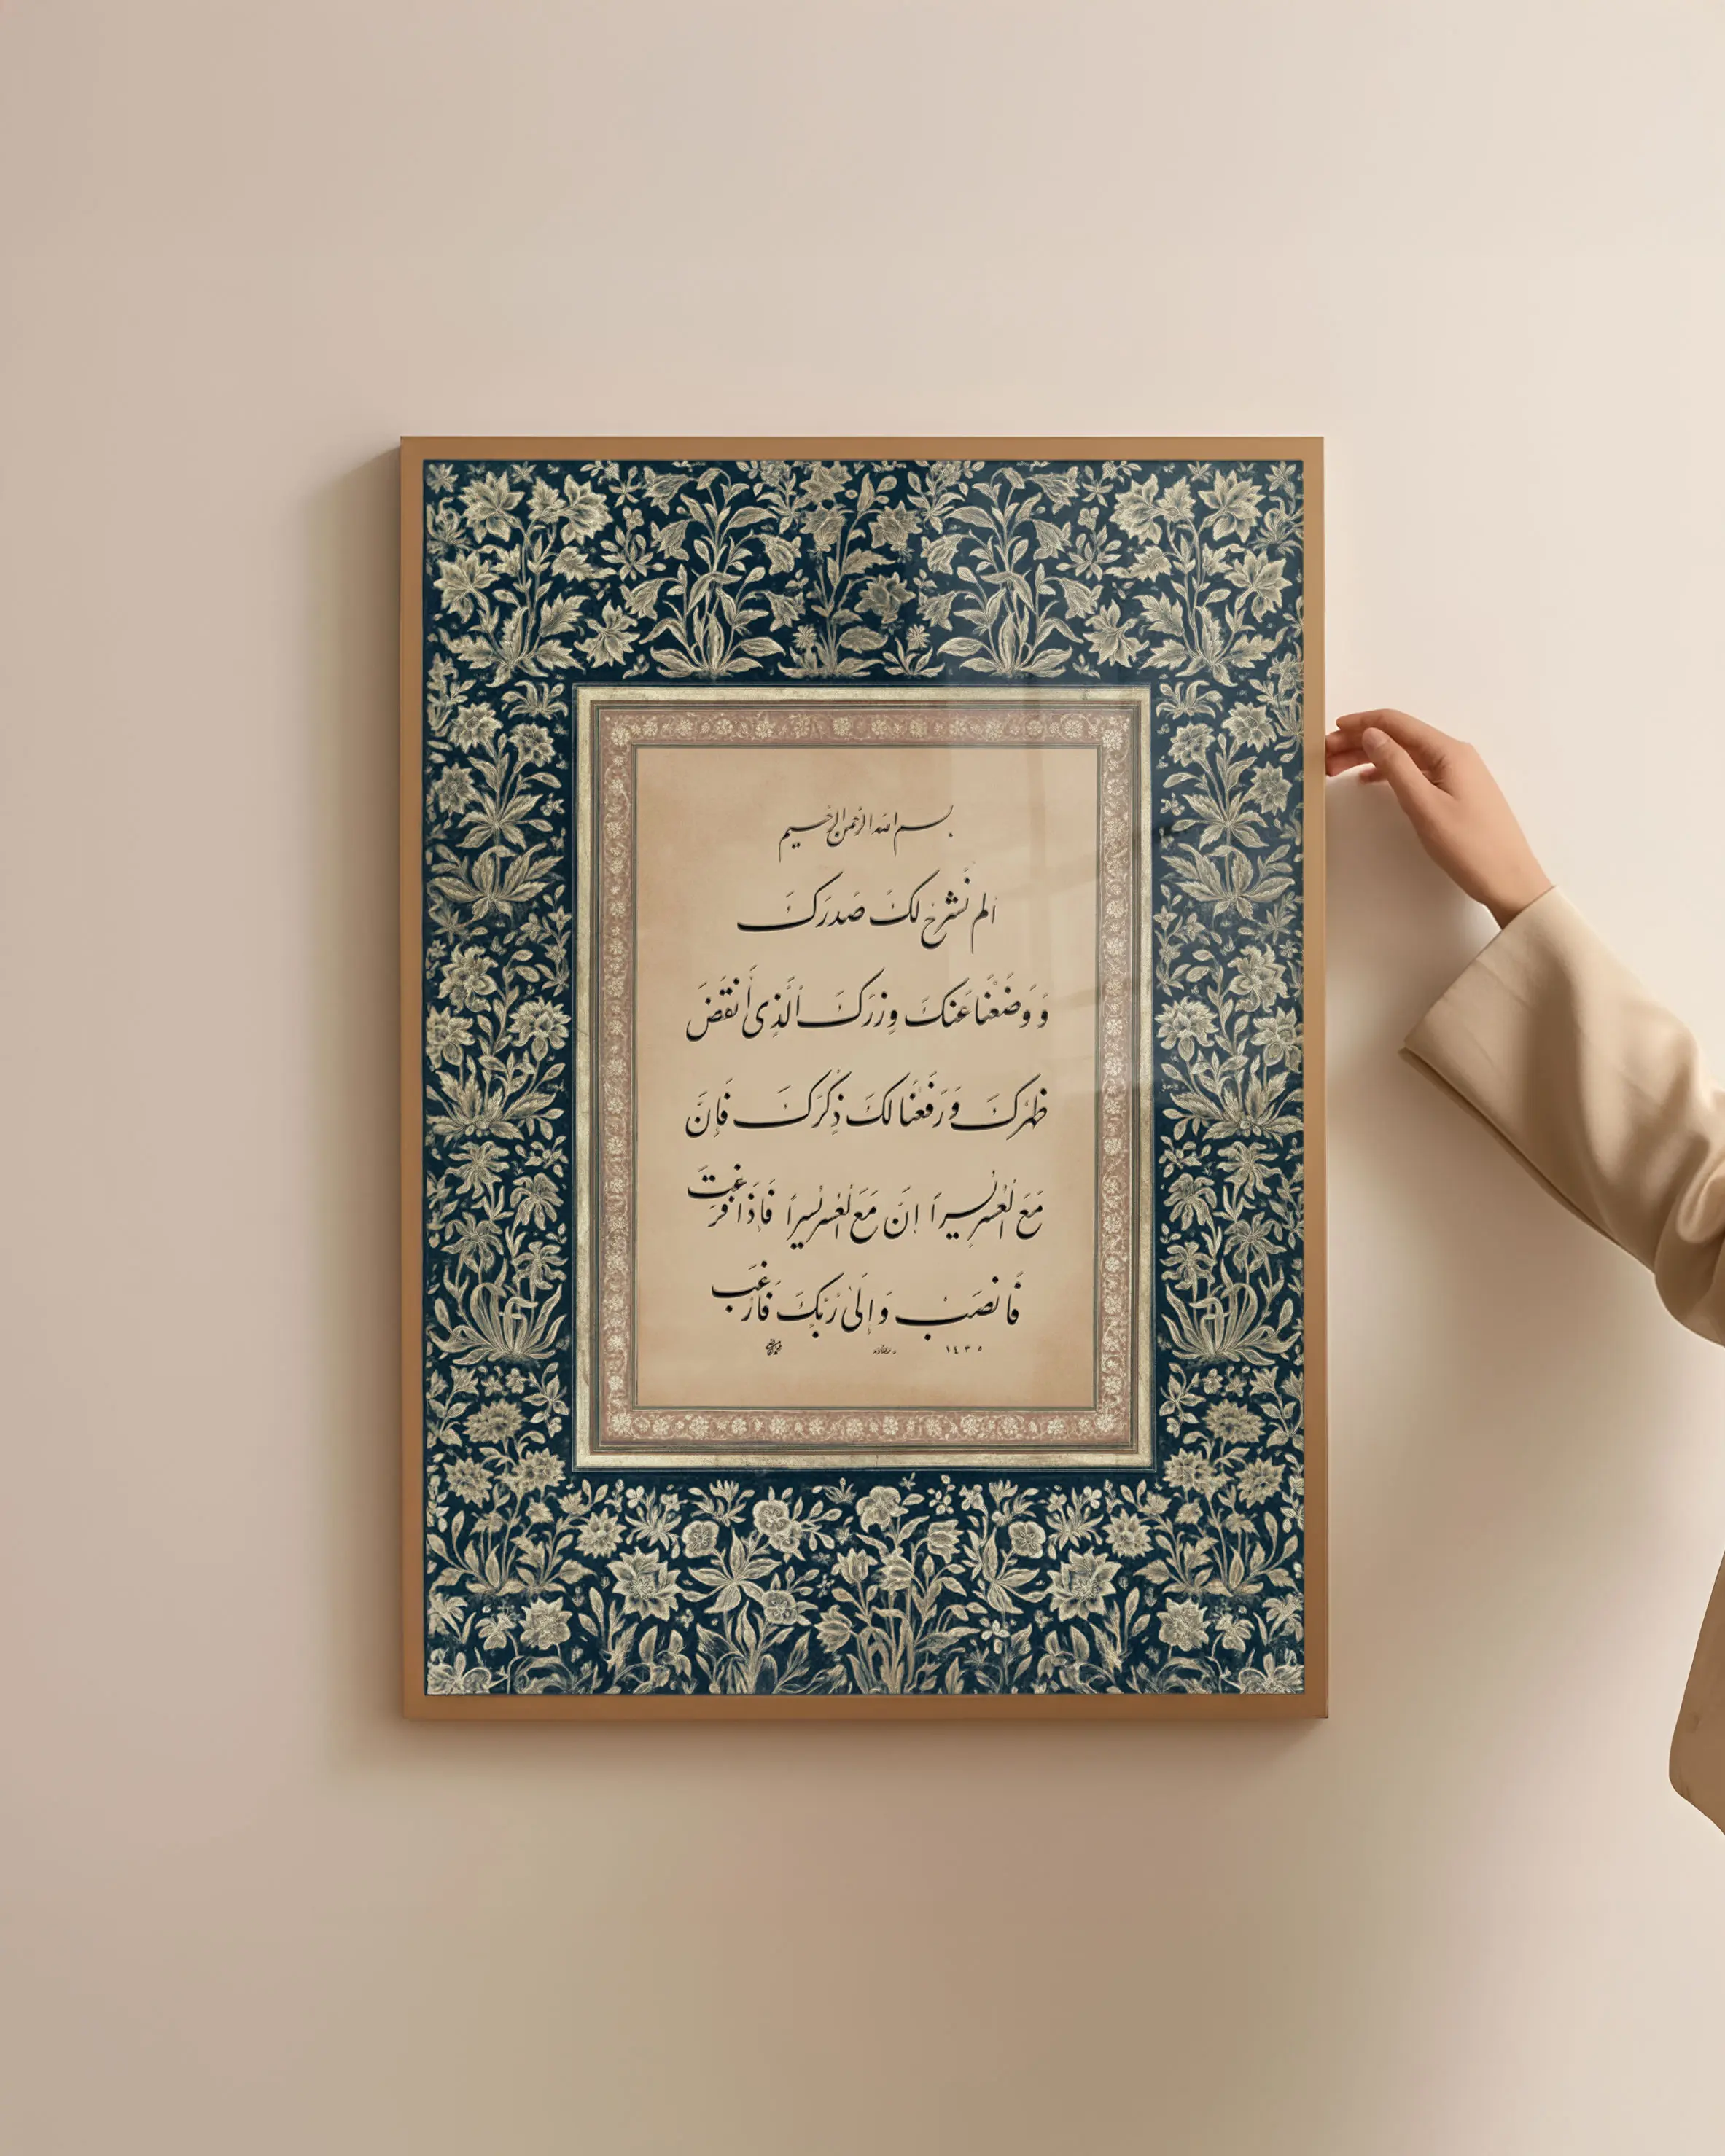 بسم الله الرحمن الرحيم
الم نَشْرح لكَ صْدرَكَ
وَ وَضَعْنَا عَنكَ وِزرَكَ الَّذِى أَنقَضَ
ظَهْرَكَ وَ رَفَعْنَا لَكَ ذِكْرَكَ فَإِنَّ
مَعَ الْعُسْرِ يُسراً إِنَّ مَعَ الْعُسْرِ يُسراً فَإِذَا فَرَغتَ
فَانصَبْ وَإِلَىٰ رَبِّكَ فَارْغَب
١٤٣٥